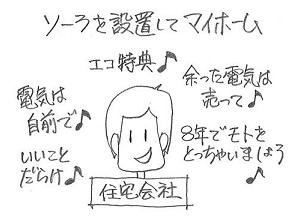 ソーラを設置してマイホーム
エコ特典♪
電気は
自前で♪
いいこと
だらけ♪
余った電気は
売って♪
8年でモトを
とっちゃいましょう
♪
住宅会社